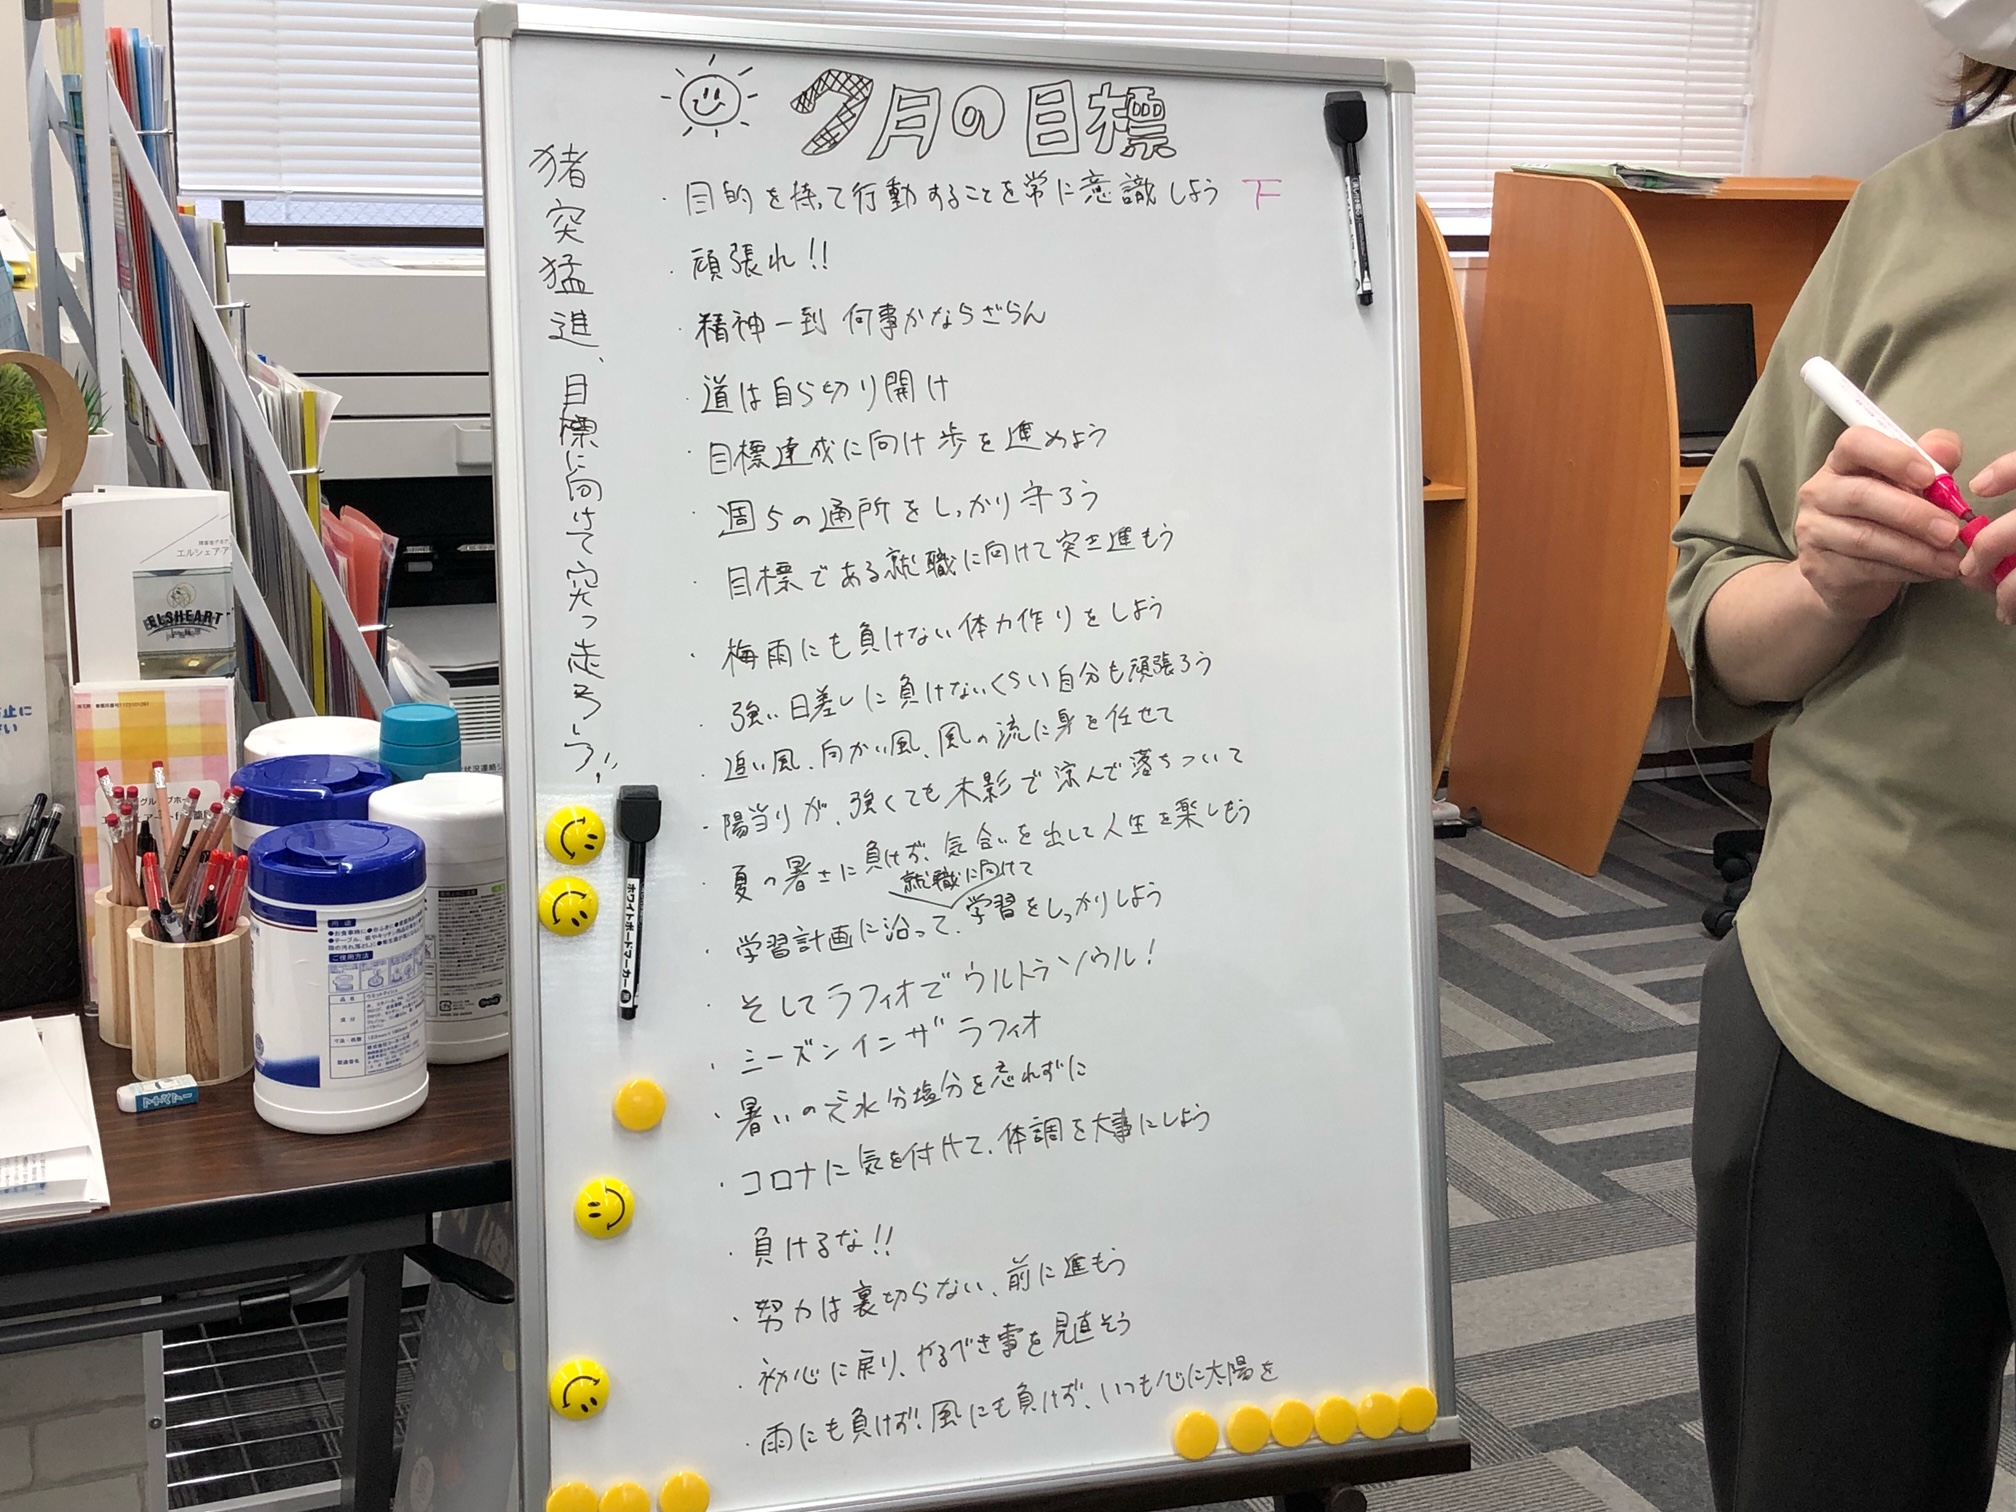 7月の目標
猪突猛進、目標に向けて突っ走ろう!!
・目的を持って行動することを常に意識しよう
・頑張れ!!
・精神一到 何事かならざらん
・道は自ら切り開け
・目標達成に向け歩を進めよう
・週5の通所をしっかり守ろう
・目標である就職に向けて突き進もう
・梅雨にも負けない体力作りをしよう
・強い日差しに負けないくらい自分も頑張ろう
・追い風、向かい風、風の流に身を任せて
・陽当りが、強くても木影で涼んで落ちついて
・夏の暑さに負けず、気合いを出して人生を楽しもう
就職に向けて
・学習計画に沿って、学習をしっかりしよう
・そしてラフィオでウルトラソウル!
・シーズンインザ ラフィオ
・暑いので水分塩分を忘れずに
・コロナに気を付けて、体調を大事にしよう
・負けるな!!
・努力は裏切らない、前に進もう
・初心に戻り、やるべき事を見直そう
・雨にも負けず!風にも負けず、いつも心に太陽を
ホワイトボードマーカー
ELSHEART
エルシェアア
用途
ご使用方法
品名
成分